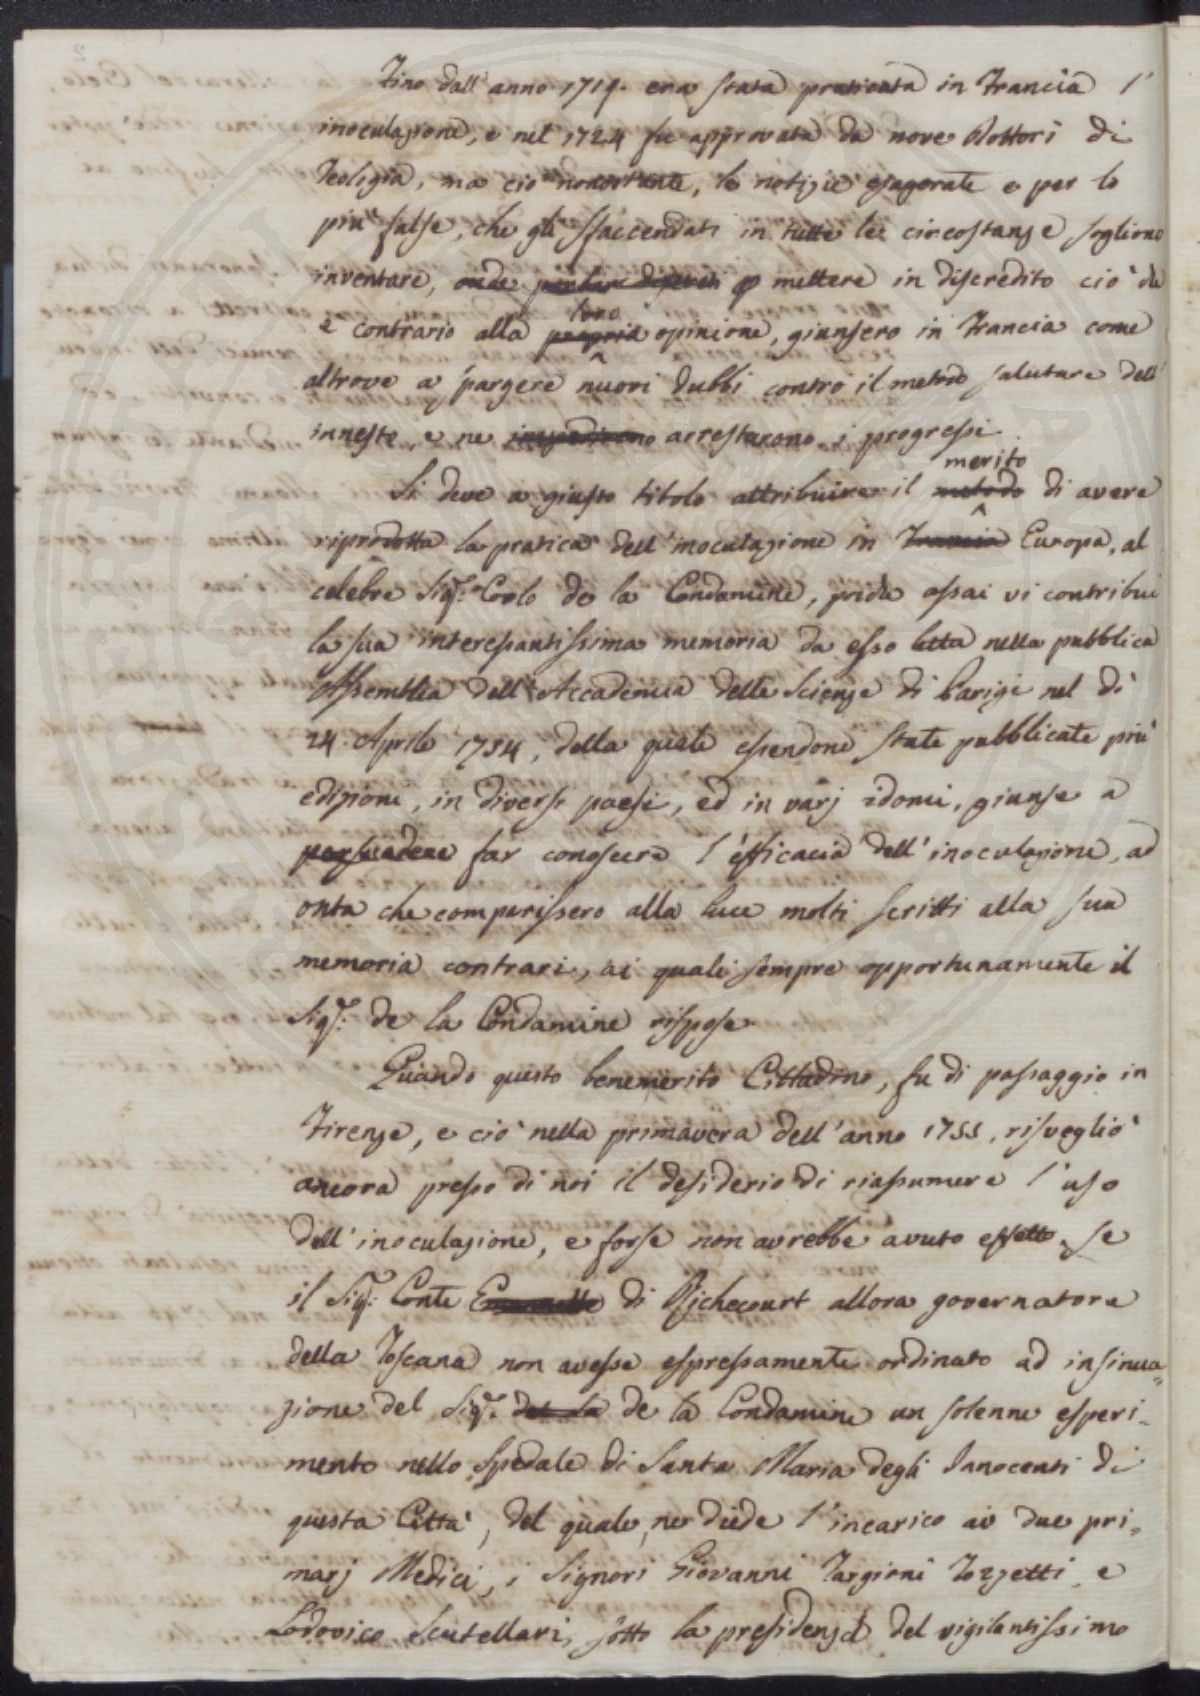 Fino dall'anno 1719. era stata praticata in Francia l'
inoculazione, e nel 1724 fu approvata da nove Dottori di
Teologia, ma ciò nonostante, le notizie esagerate e per lo
più false, che gli sfaccendati in tutte le circostanze sogliono
inventare, onde per mettere in discredito ciò che
loro
è contrario alla propria opinione, giunsero in Francia come
altrove a spargere nuovi dubbi contro il metodo salutare dell'
innesto, e ne impedirono arrestarono i progressi.
merito
Si deve a giusto titolo attribuire il metodo di avere
riprodotta la pratica dell'inoculazione in Francia Europa, al
celebre Sigr. Carlo de la Condamine, poichè assai vi contribuì
la sua interessantissima memoria da esso letta nella pubblica
Assemblea dell'Accademia delle Scienze di Parigi nel dì
24. Aprile 1754, della quale essendone state pubblicate più
edizioni, in diversi paesi, ed in varj idomi, giunse a
persuadere far conoscere l'efficacia dell'inoculazione, ad
onta che comparissero alla luce molti scritti alla sua
memoria contrari, ai quali sempre opportunamente il
Sigr. de la Condamine rispose.
Quando questo benemerito Cittadino, fu di passaggio in
Firenze, e ciò nella primavera dell'anno 1755, risvegliò
ancora presso di noi il desiderio di riassumere l'uso
dell'inoculazione, e forse non avrebbe avuto effetto, se
il Sigr. Conte di Richecourt allora governatore
della Toscana non avesse espressamente ordinato ad insinua=
zione del Sigr. de la de la Condamine un solenne esperi=
mento nello Spedale di Santa Maria degli Innocenti di
questa Città, del quale, ne diede l'incarico ai due pri=
marj Medici, i Signori Giovanni Targioni Tozzetti, e
Lodovico Scutellari, sotto la presidenza del vigilantissimo